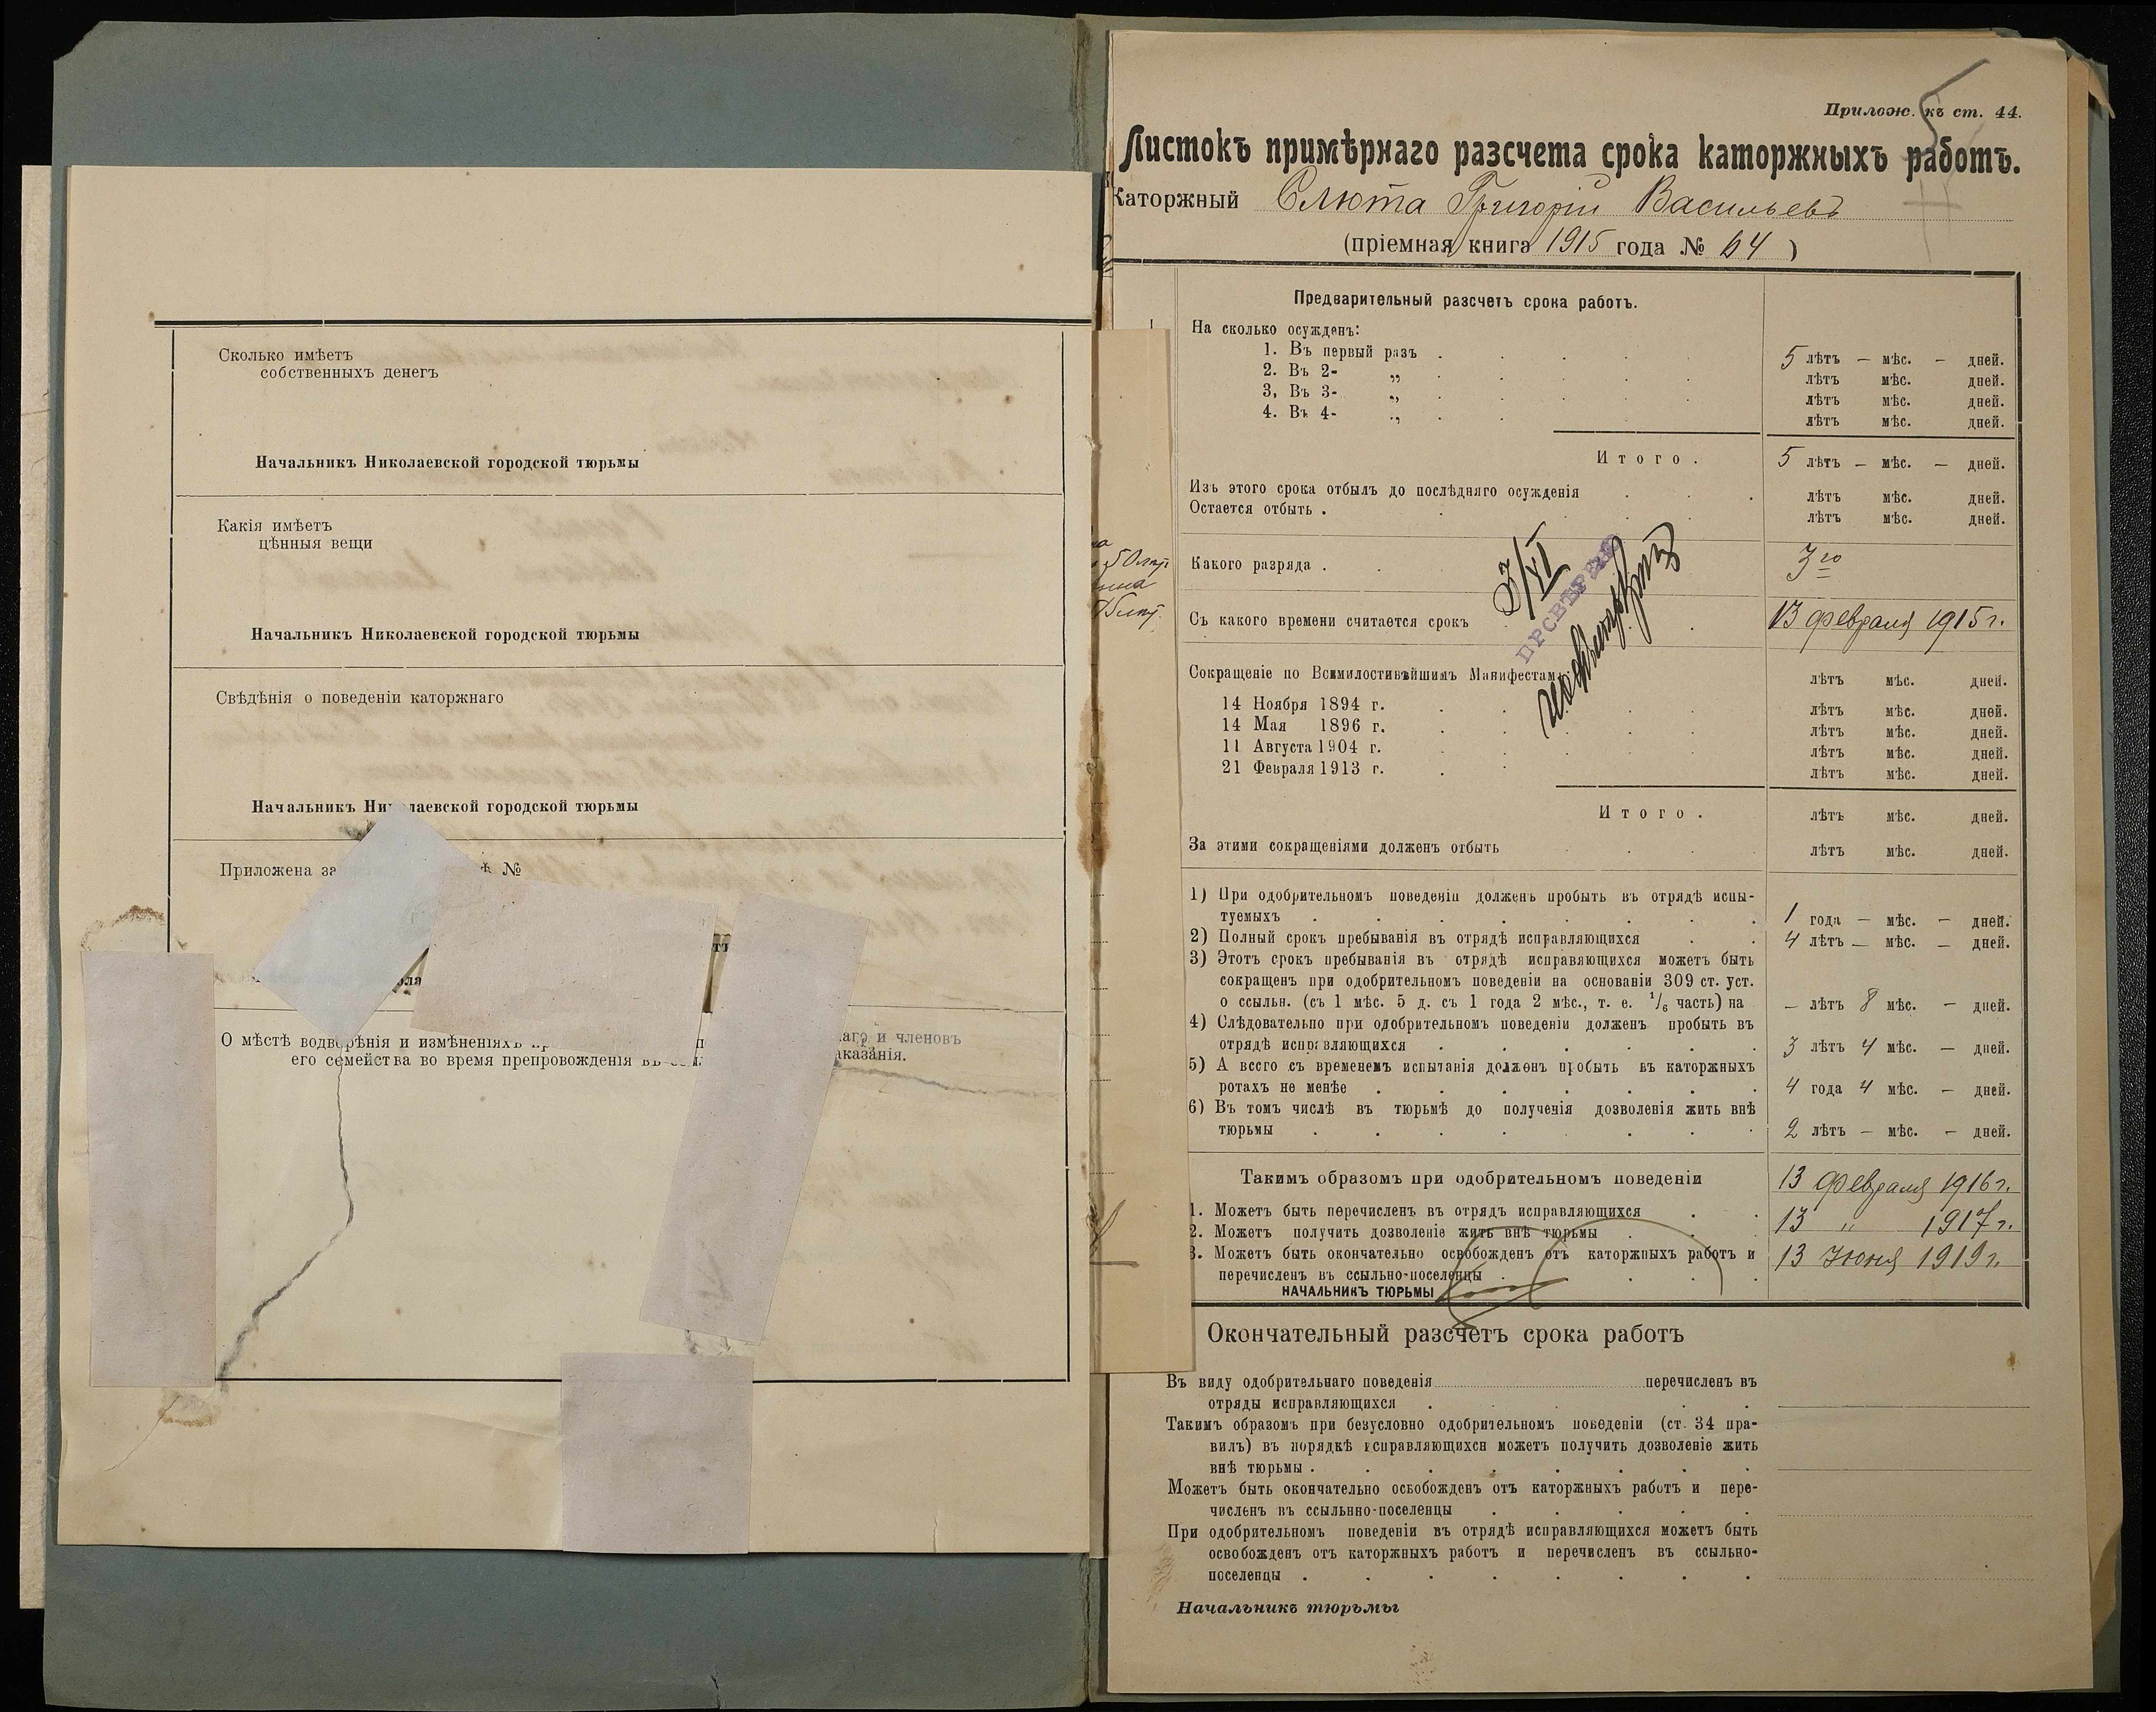 Сколько имѣетъ
собственныхъ денегъ
Начальникъ Николаевской городской тюрьмы
Какія имѣетъ
цѣнныя вещи
Начальникъ Николаевской городской тюрьмы
Свѣдѣнія о поведеніи каторжнаго
Начальникъ Николаевской городской тюрьмы
Приложена №
О мѣстѣ водворенія и измѣненіяхъ и членовъ
его семейства во время препровожденія
Прилож. къ ст. 44.
Листокъ примѣрнаго разсчета срока каторжныхъ работъ.
Каторжный Слюта Григорій Васильевъ
(пріемная книга 1915 года № 64)
Предварительный разсчетъ срока работъ.
На сколько осужденъ:
1. Въ первый разъ . 5 лѣтъ – мѣс. – дней.
2. Въ 2- „ лѣтъ мѣс. дней.
3, Въ 3- „ лѣтъ мѣс. дней.
4. Въ 4- „ лѣтъ мѣс. дней.
Итого. 5 лѣтъ – мѣс. – дней.
Изъ этого срока отбылъ до послѣдняго осужденія лѣтъ мѣс. дней.
Остается отбыть . лѣтъ мѣс. дней.
Какого разряда . 3го
Съ какого времени считается срокъ 13 февраля 1915 г.
Сокращеніе по Всемилостивѣйшимъ Манифестамъ лѣтъ мѣс. дней.
14 Ноября 1894 г. лѣтъ мѣс. дней.
14 Мая 1896 г. лѣтъ мѣс. дней.
11 Августа 1904 г. лѣтъ мѣс. дней.
21 Февраля 1913 г. лѣтъ мѣс. дней.
Итого. лѣтъ мѣс. дней.
За этими сокращеніями долженъ отбыть лѣтъ мѣс. дней.
1) При одобрительномъ поведеніи долженъ пробыть въ отрядѣ испы-
туемыхъ 1 года – мѣс. – дней.
2) Полный срокъ пребыванія въ отрядѣ исправляющихся 4 лѣтъ – мѣс. – дней.
3) Этотъ срокъ пребыванія въ отрядѣ исправяющихся можетъ быть
сокращенъ при одобрительномъ поведеніи на основаніи 309 ст. уст.
о ссыльн. (съ 1 мѣс. 5 д. съ 1 года 2 мѣс., т. е. 1/6 часть) на – лѣтъ 8 мѣс. – дней.
4) Слѣдовательно при одобрительномъ поведеніи долженъ пробыть въ
отрядѣ исправляющихся 3 лѣтъ 4 мѣс. – дней.
5) А всего съ временемъ испытанія долженъ пробыть въ каторжныхъ
ротахъ не менѣе 4 года 4 мѣс. – дней.
6) Въ томъ числѣ въ тюрьмѣ до полученія дозволенія жить внѣ
тюрьмы 2 лѣтъ – мѣс. – дней.
Такимъ образомъ при одобрительномъ поведеніи
1. Можетъ быть перечисленъ въ отрядъ исправляющихся 13 февраля 1916 г.
2. Можетъ получить дозволеніе жить внѣ тюрьмы 13 „ 1917 г.
3. Можетъ быть окончательно освобожденъ отъ каторжныхъ работъ и
перечисленъ въ ссыльно-поселенцы 13 Июня 1919 г.
НАЧАЛЬНИКЪ ТЮРЬМЫ
Окончательный разсчетъ срока работъ
Въ виду одобрительнаго поведенія перечисленъ въ
отряды исправляющихся
Такимъ образомъ при безусловно одобрительномъ поведеніи (ст. 34 пра-
вилъ) въ порядкѣ исправляющихся можетъ получить дозволеніе жить
внѣ тюрьмы .
Можетъ быть окончательно освобожденъ отъ каторжныхъ работъ и пере-
численъ въ ссыльно-поселенцы
При одобрительномъ поведеніи въ отрядѣ исправляющихся можетъ быть
освобожденъ отъ каторжныхъ работъ и перечисленъ въ ссыльно-
поселенцы .
Начальникъ тюрьмы